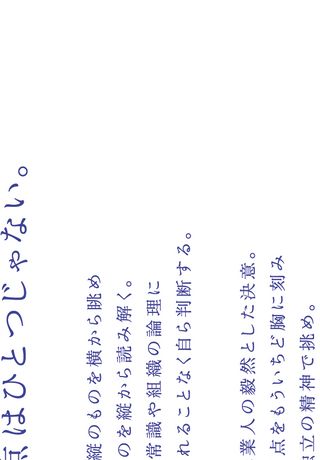 点はひとつじゃない。
縦のものを横から眺め
のを縦から読み解く。
常識や組織の論理に
れることなく自ら判断する。
業人の毅然とした決意。
点をもういちど胸に刻み
立の精神で挑め。